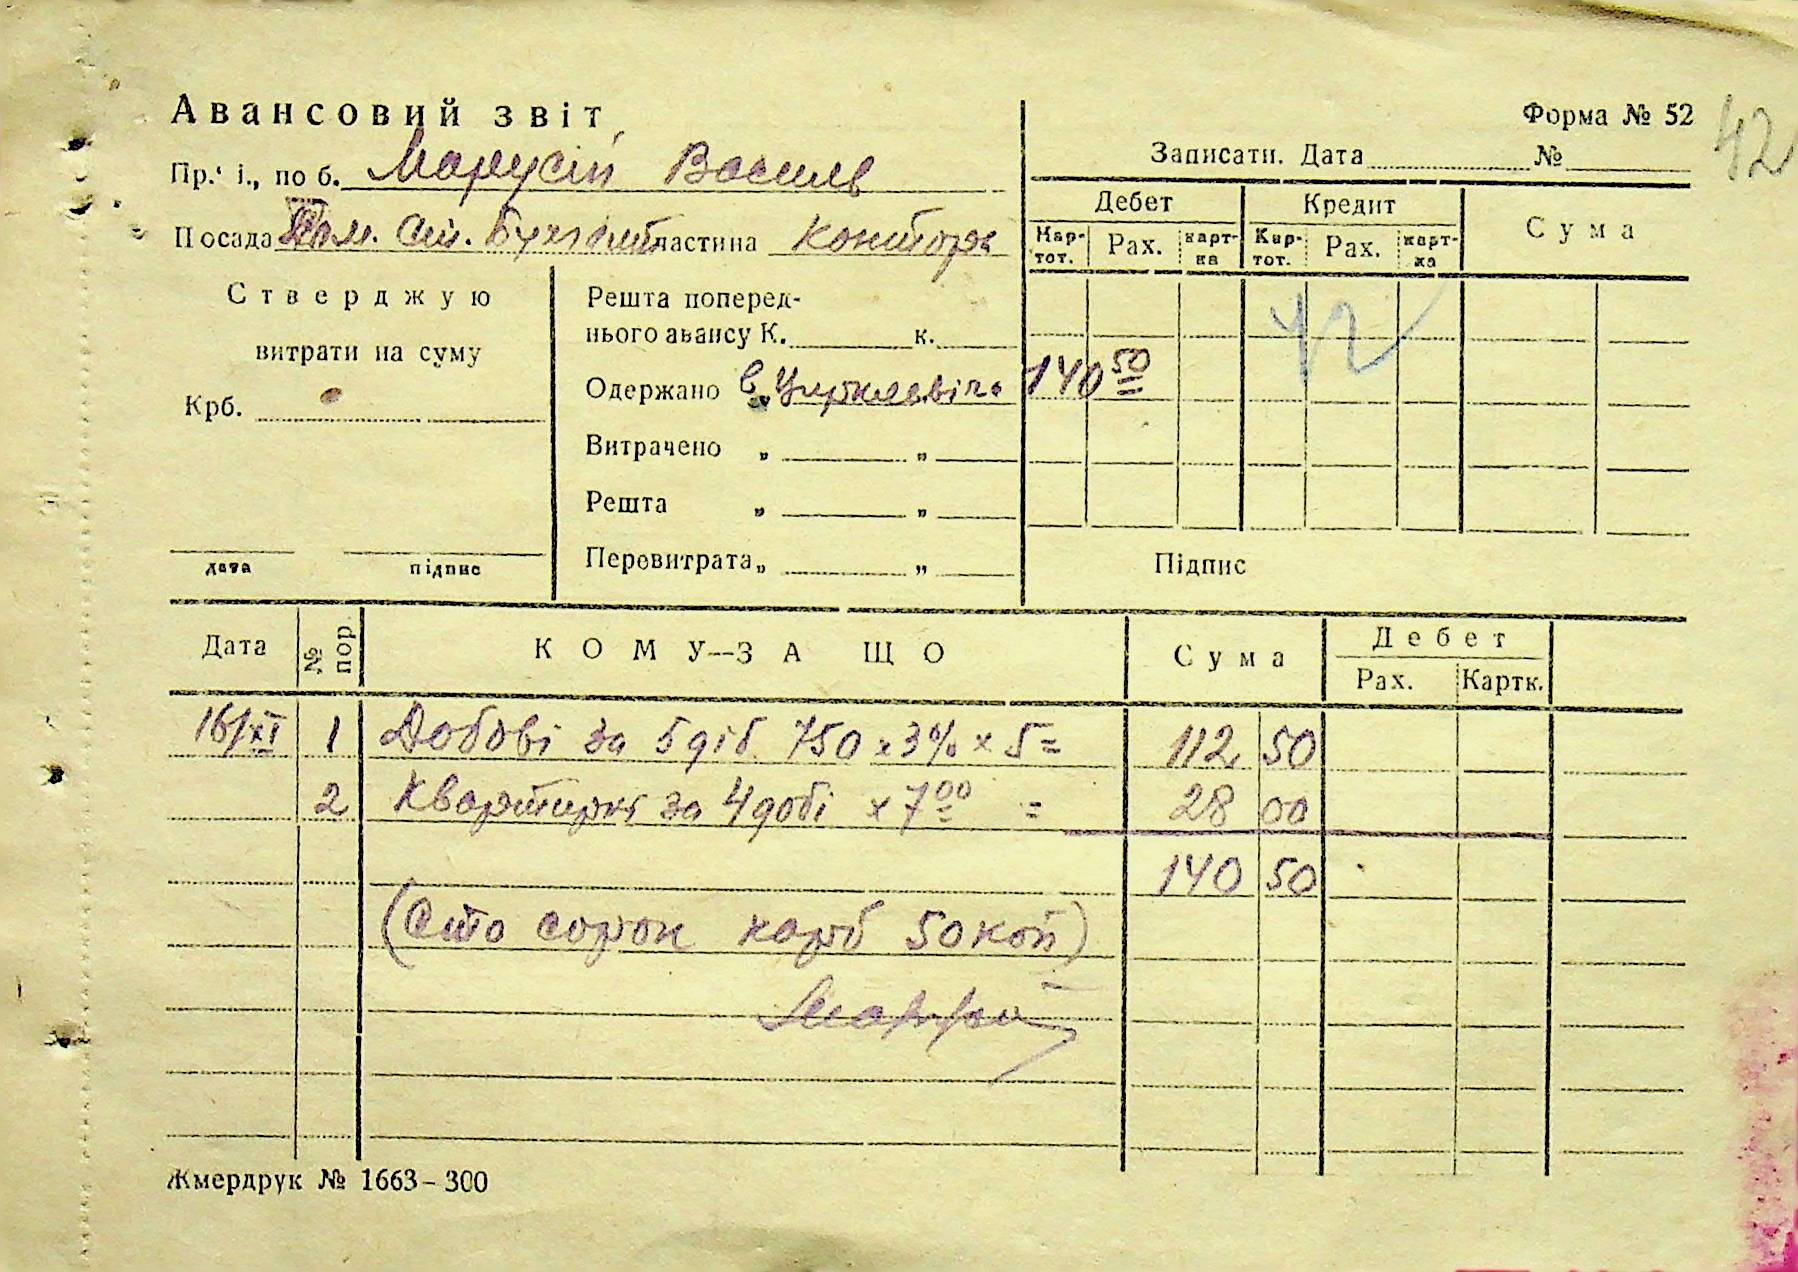 Авансовий звіт
Форма № 52
42
Пр. і., по б. Марусій Василь
Записати. Дата № 
Посада Пом. Ст. Бухгалт частина контора
Дебет Кредит Сума
Кар-тот. Рах. карт-ка Кар-тот. Рах. карт-ка
Стверджую
витрати на суму
Крб.
дата підпис
Решта поперед-
нього авансу К. к.
42
Одержано в 140 50
Витрачено „ „
Решта „ „
Перевитрата „ „
Підпис
Дата № пор. КОМУ—ЗА ЩО Сума Дебет
Рах. Картк.
16/XI 1 Добові за 5 діб 750 х 3% х 5 = 112 50
2 Квартирні за 4 добі х 7 00 = 28 00
140 50
(Сто сорок карб 50 коп)
Жмердрук № 1663-300